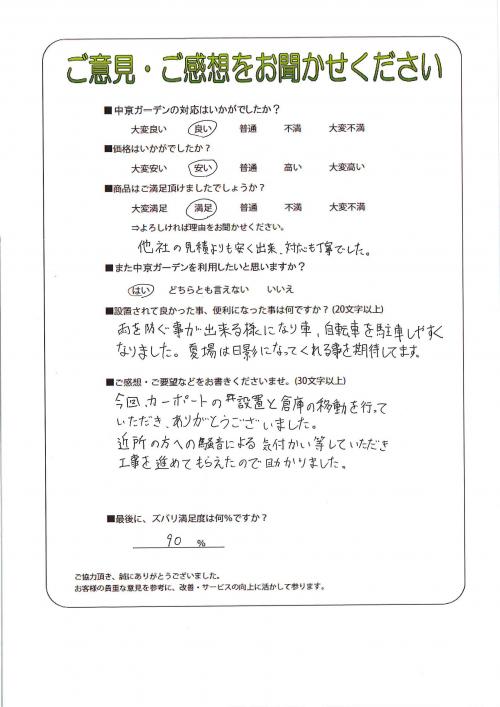 ご意見・ご感想をお聞かせください
■中京ガーデンの対応はいかがでしたか？
大変良い 良い 普通 不満 大変不満
■価格はいかがでしたか？
大変安い 安い 普通 高い 大変高い
■商品はご満足頂けましたでしょうか？
大変満足 満足 普通 不満 大変不満
⇒よろしければ理由をお聞かせください。
他社の見積よりも安く出来、対応も丁寧でした。
■また中京ガーデンを利用したいと思いますか？
はい どちらとも言えない いいえ
■設置されて良かった事、便利になった事は何ですか？(20文字以上)
雨を防ぐ事が出来る様になり車、自転車を駐車しやすく
なりました。夏場は日影になってくれる事を期待してます。
■ご感想・ご要望などをお書きくださいませ。(30文字以上)
今回、カーポートの設置と倉庫の移動を行って
いただき、ありがとうございました。
近所の方への騒音による気付かい等していただき
工事を進めてもらえたので助かりました。
■最後に、ズバリ満足度は何％ですか？
90 ％
ご協力頂き、誠にありがとうございました。
お客様の貴重な意見を参考に、改善・サービスの向上に活かして参ります。